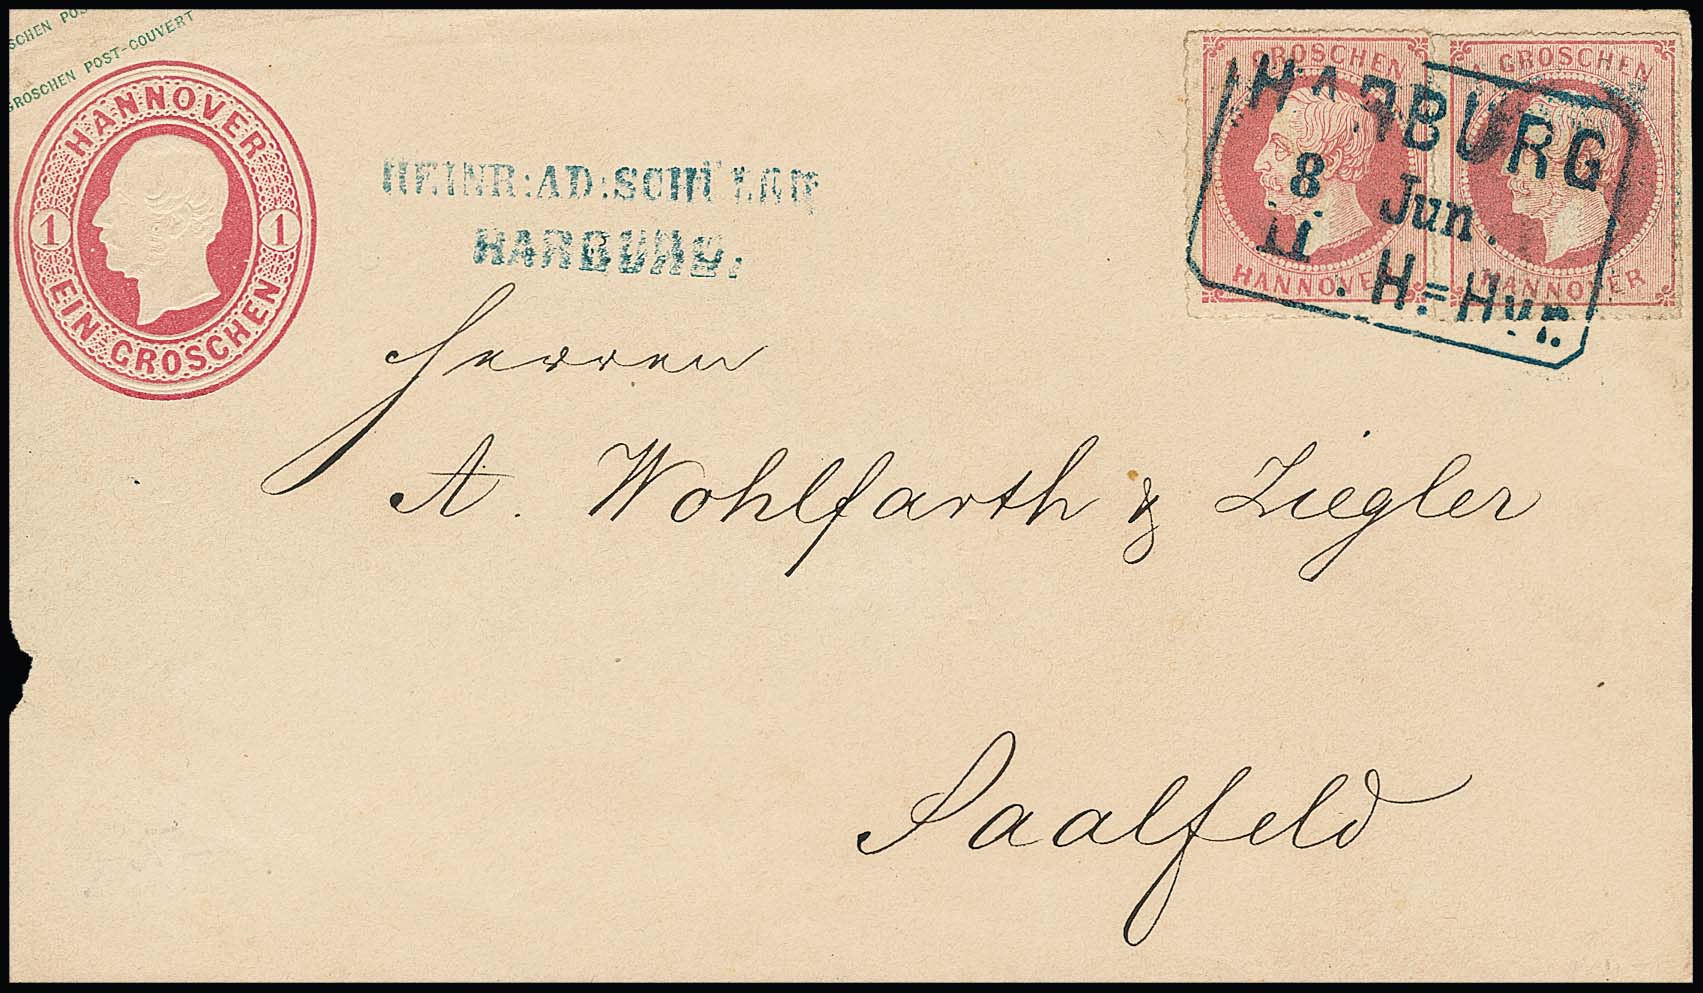 SCHEN POS
GROSCHEN POST-COUVERT
HANNOVER
1 1
EIN GROSCHEN
HEINR:AD:SCHÜLER
HARBURG.
GROSCHEN
HANNOVER
GROSCHEN
HANNOVER
HARBURG
8 Jun.
11 . H.=Hvr.
Herren
A. Wohlfarth & Ziegler
Saalfeld